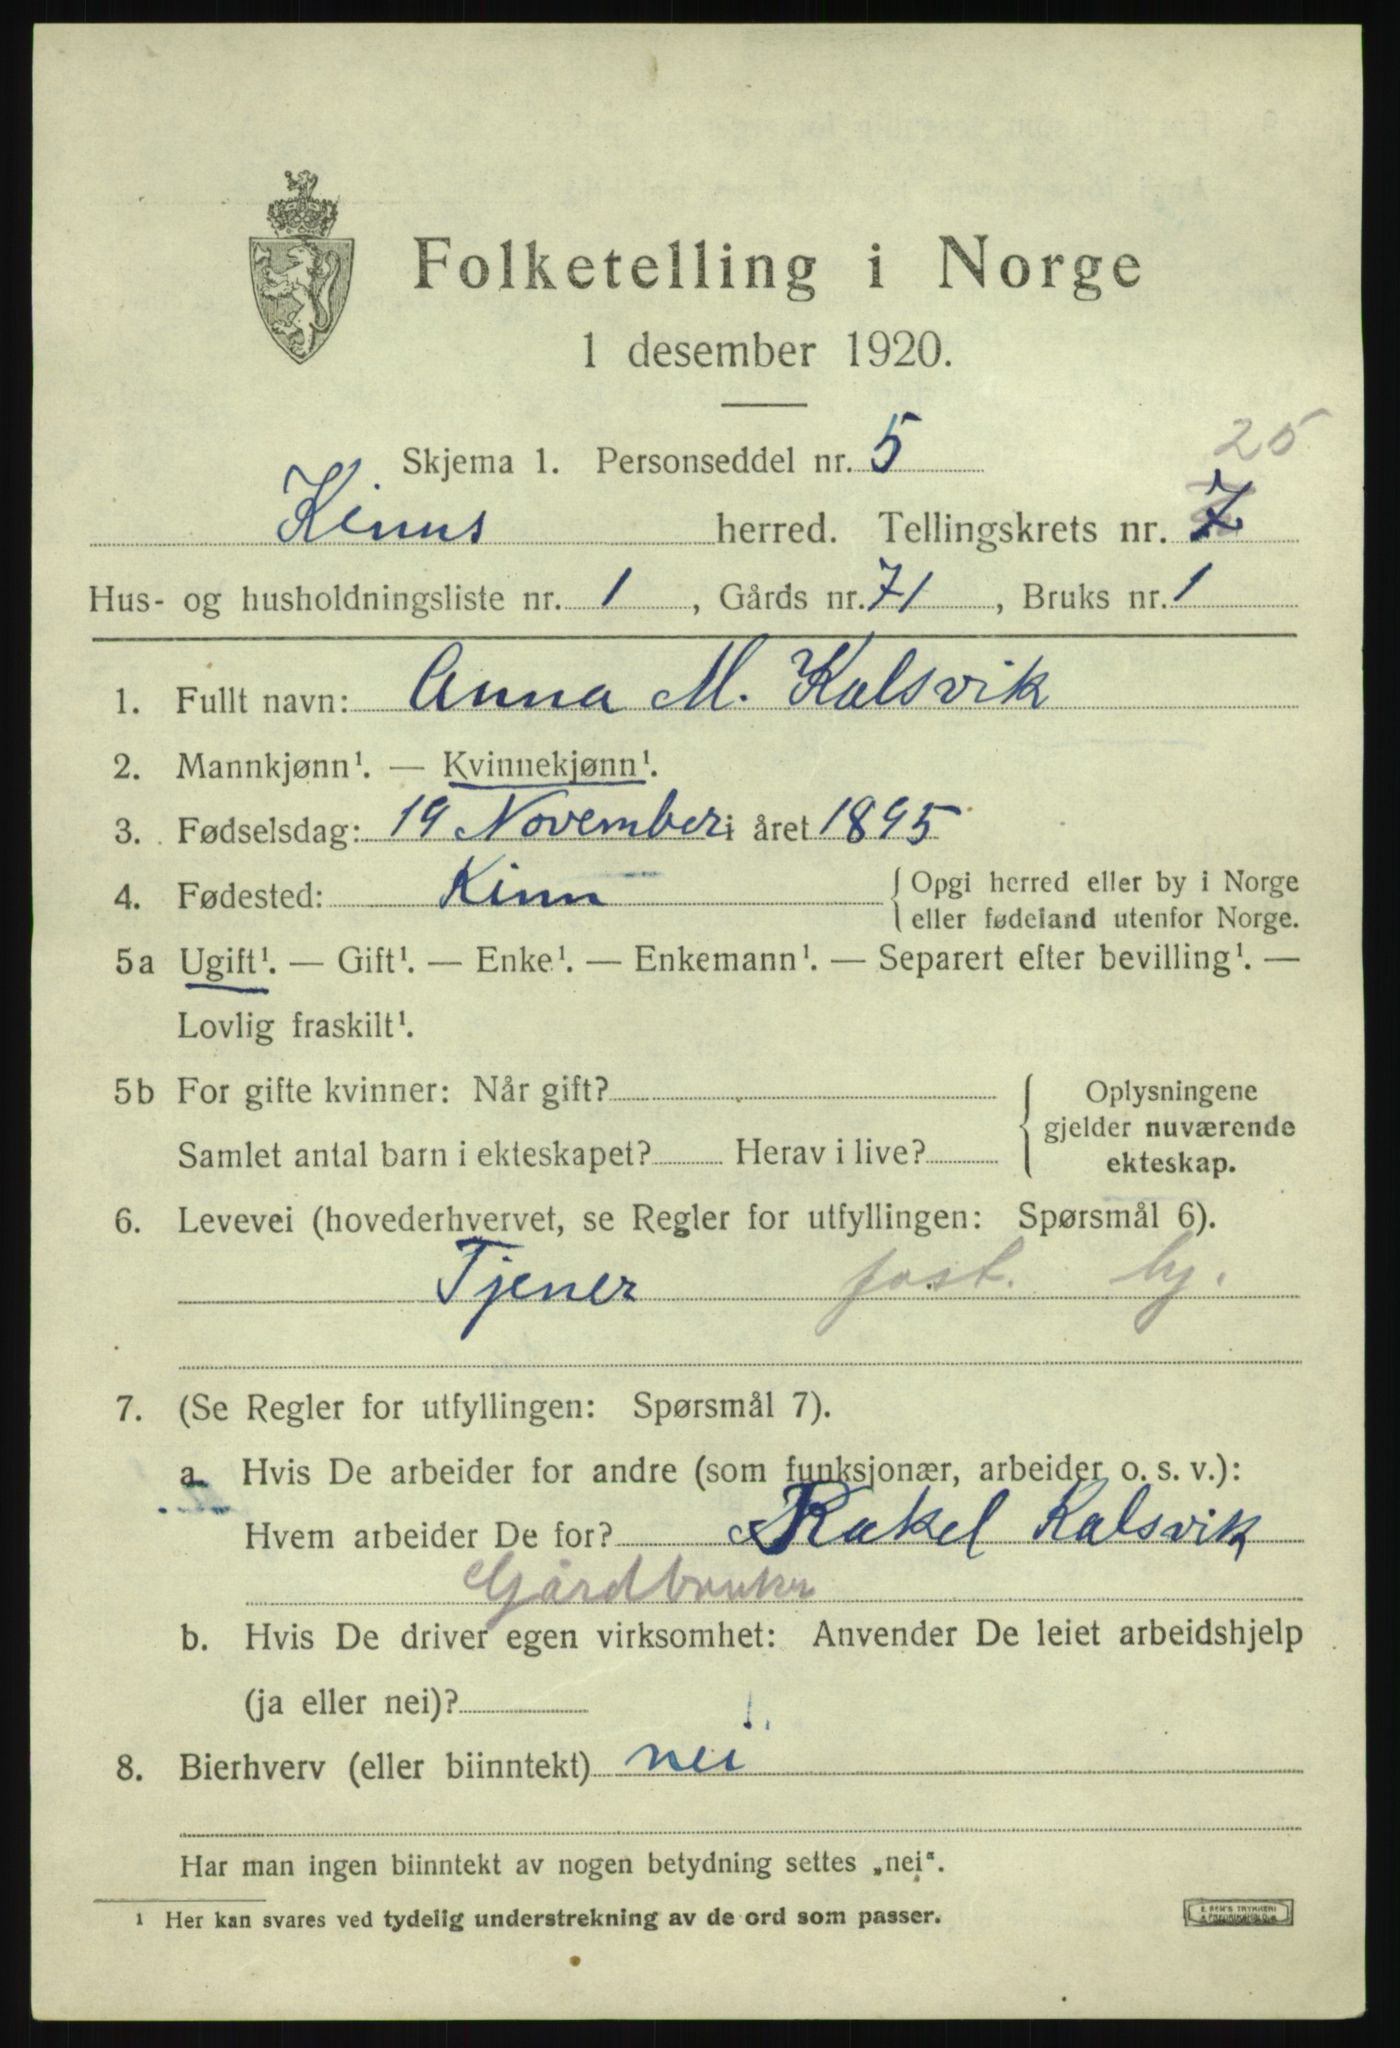 Folketelling i Norge
1 desember 1920.
Skjema 1. Personseddel nr. 5
25
Kinns herred. Tellingskrets nr. 7
Hus- og husholdningsliste nr. 1, Gårds nr. 71, Bruks nr. 1
1. Fullt navn: Anna M. Kalsvik
2. Mannkjønn¹. — Kvinnekjønn¹.
3. Fødselsdag: 19 November i året 1895
4. Fødested: Kinn { Opgi herred eller by i Norge
eller fødeland utenfor Norge.
5a Ugift¹. — Gift¹. — Enke¹. — Enkemann¹. — Separert efter bevilling¹. —
Lovlig fraskilt¹.
5b For gifte kvinner: Når gift? { Oplysningene
gjelder nuværende
Samlet antal barn i ekteskapet? Herav i live? ekteskap.
6. Levevei (hovederhvervet, se Regler for utfyllingen: Spørsmål 6).
Tjener jost. hj.
7. (Se Regler for utfyllingen: Spørsmål 7).
a Hvis De arbeider for andre (som funksjonær, arbeider o. s. v.):
Hvem arbeider De for? Rakel Kalsvik
Gårdbruker
b. Hvis De driver egen virksomhet: Anvender De leiet arbeidshjelp
(ja eller nei)?
8. Bierhverv (eller biinntekt) nei
Har man ingen biinntekt av nogen betydning settes „nei".
¹ Her kan svares ved tydelig understrekning av de ord som passer.